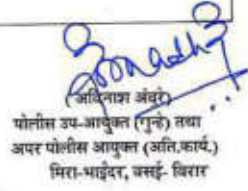 (अविनाश अंबुरे)
पोलीस उप-आयुक्त (गुन्हे) तथा
अपर पोलीस आयुक्त (अति.कार्य.)
मिरा-भाईंदर, वसई- विरार